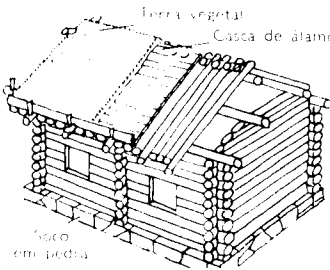 Terra vegetal
Casca de álamo
Soco
em pedra